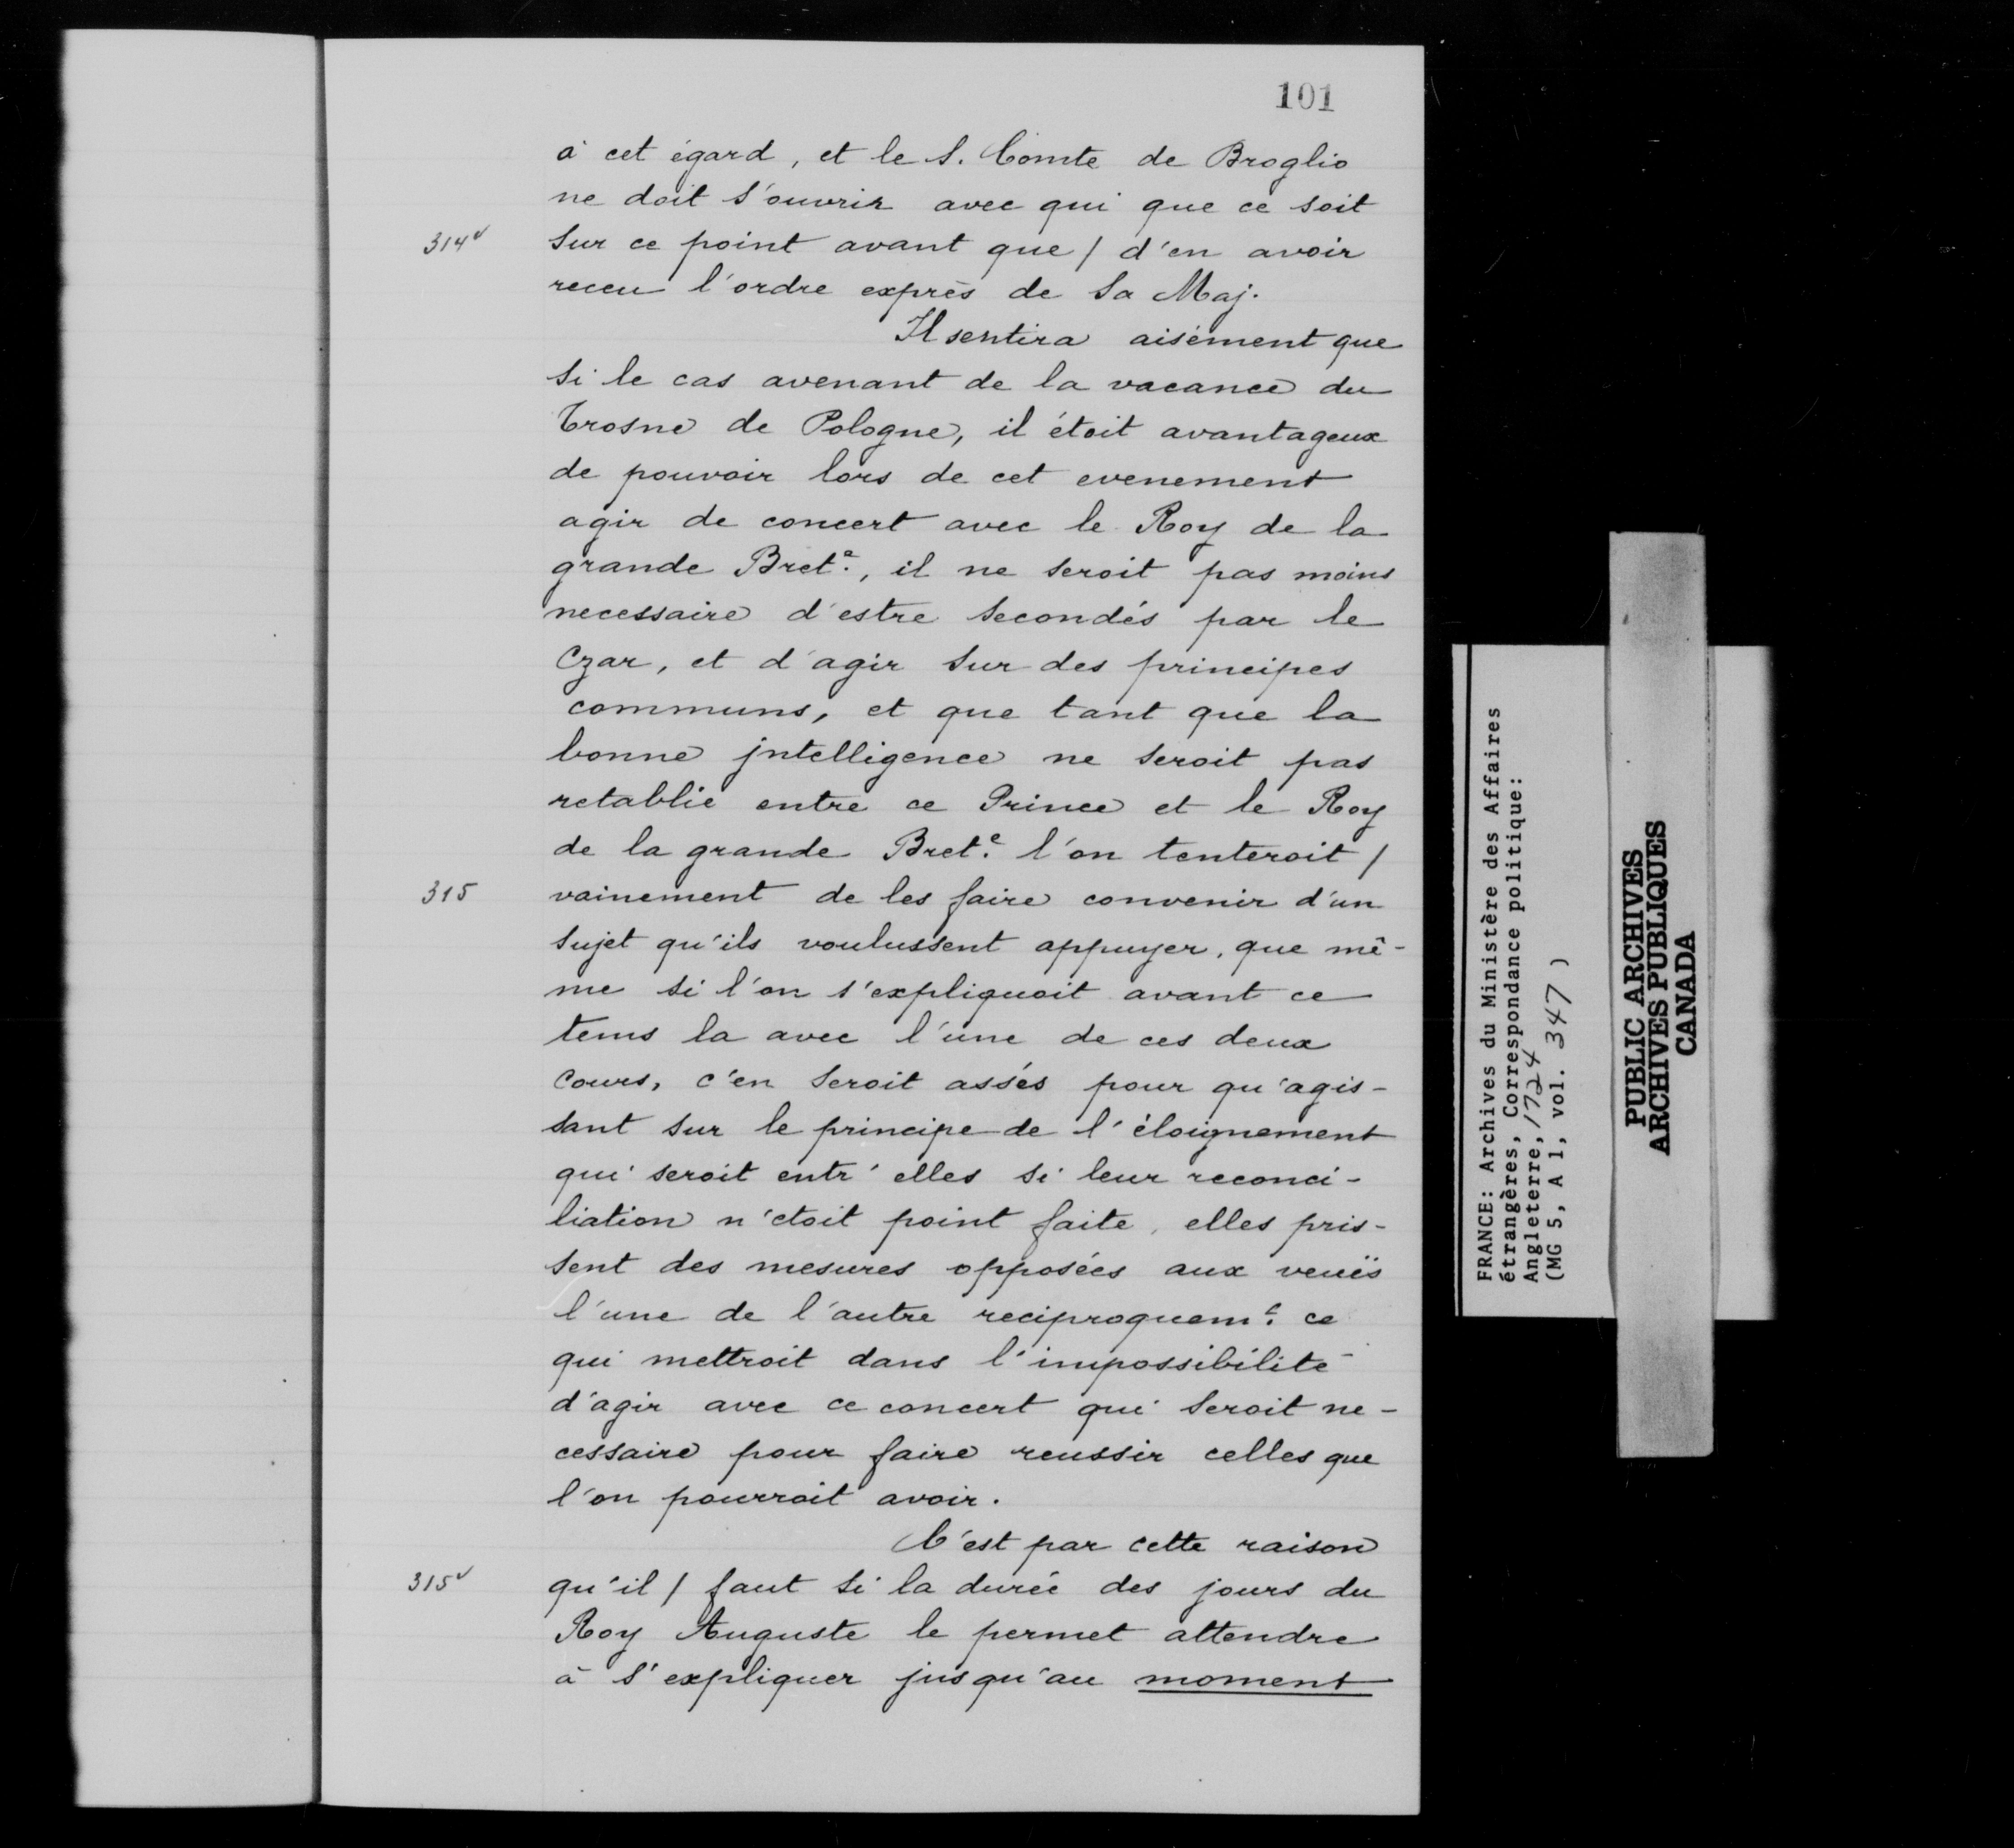 101
à cet égard, et le S. Comte de Broglio
ne doit s'ouvrir avec qui que ce soit
314v sur ce point avant que / d'en avoir
receu l'ordre exprès de Sa Maj.
Il sentira aisément que
si le cas avenant de la vacance du
Trosne de Pologne, il étoit avantageux
de pouvoir lors de cet evenement
agir de concert avec le Roy de la
grande Bret.e, il ne seroit pas moins
necessaire d'estre secondés par le
Czar, et d'agir sur des principes
communs, et que tant que la
bonne jntelligence ne seroit pas
retablie entre ce Prince et le Roy
de la grande Bret.e l'on tenteroit /
315 vainement de les faire convenir d'un
sujet qu'ils voulussent appuyer, que mê-
me si l'on s'expliquoit avant ce
tems la avec l'une de ces deux
Cours, c'en seroit assés pour qu'agis-
sant sur le principe de l'éloignement
qui seroit entr'elles si leur reconci-
liation n'étoit point faite, elles pris-
sent des mesures opposées aux veuës
l'une de l'autre reciproquem.t ce
qui mettroit dans l'impossibilité
d'agir avec ce concert qui seroit ne-
cessaire pour faire reussir celles que
l'on pourroit avoir.
C'est par cette raison
315v qu'il / faut si la durée des jours du
Roy Auguste le permet attendre
à s'expliquer jusqu'au moment
FRANCE: Archives du Ministère des Affaires
étrangères, Correspondance politique:
Angleterre, 1724
(MG 5, A 1, vol. 347 )
PUBLIC ARCHIVES
ARCHIVES PUBLIQUES
CANADA